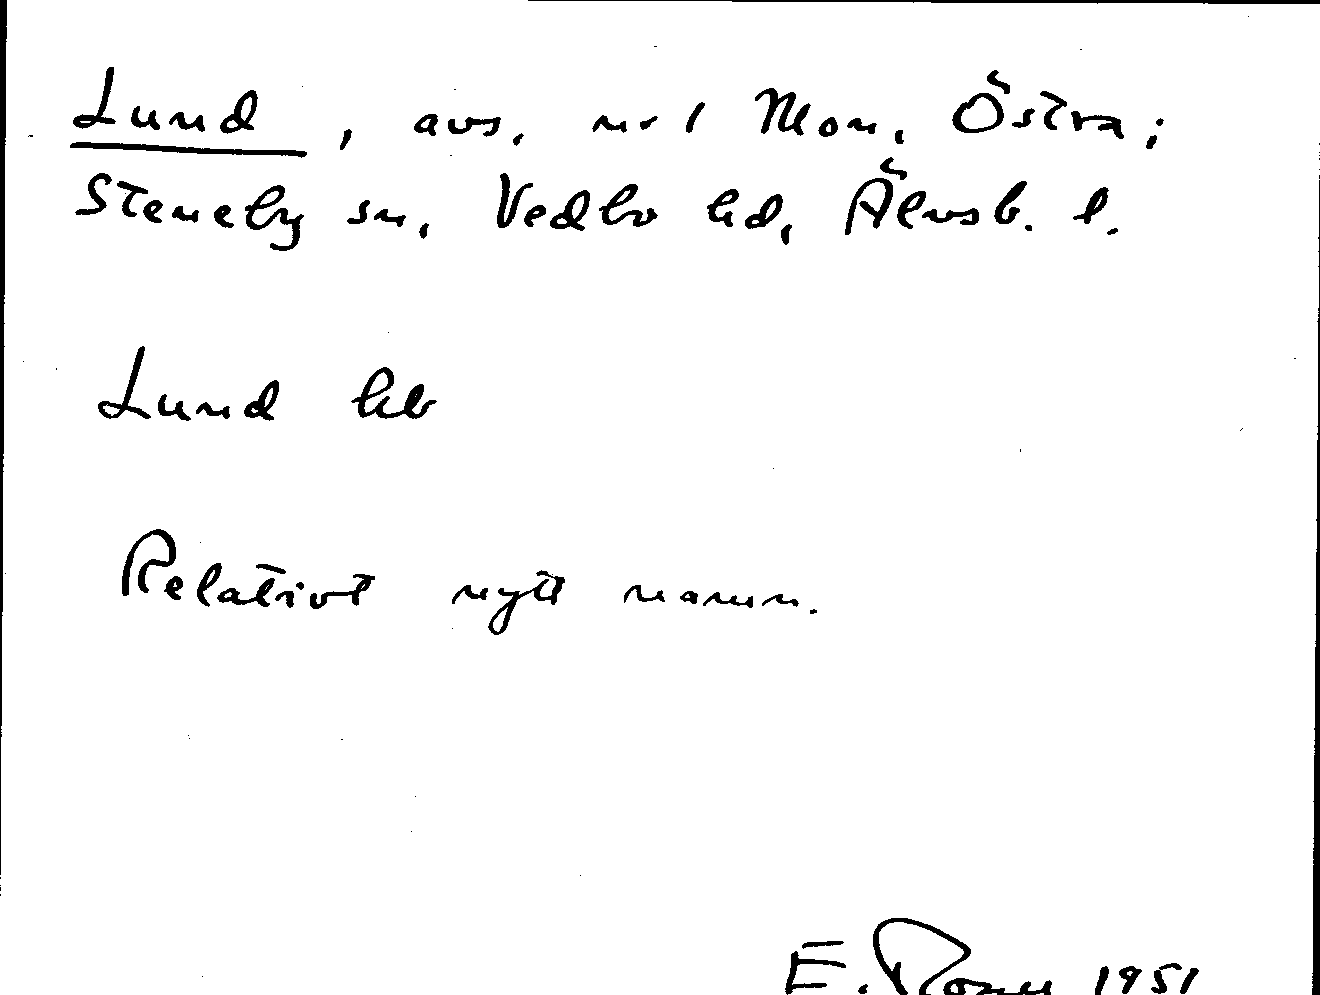 Lund, avs. nr 1 Mon, Östra;
Steneby sn, Vedbo hd, Älvsb. l.
Lund hb
Relativt nytt namn.
E. 1951